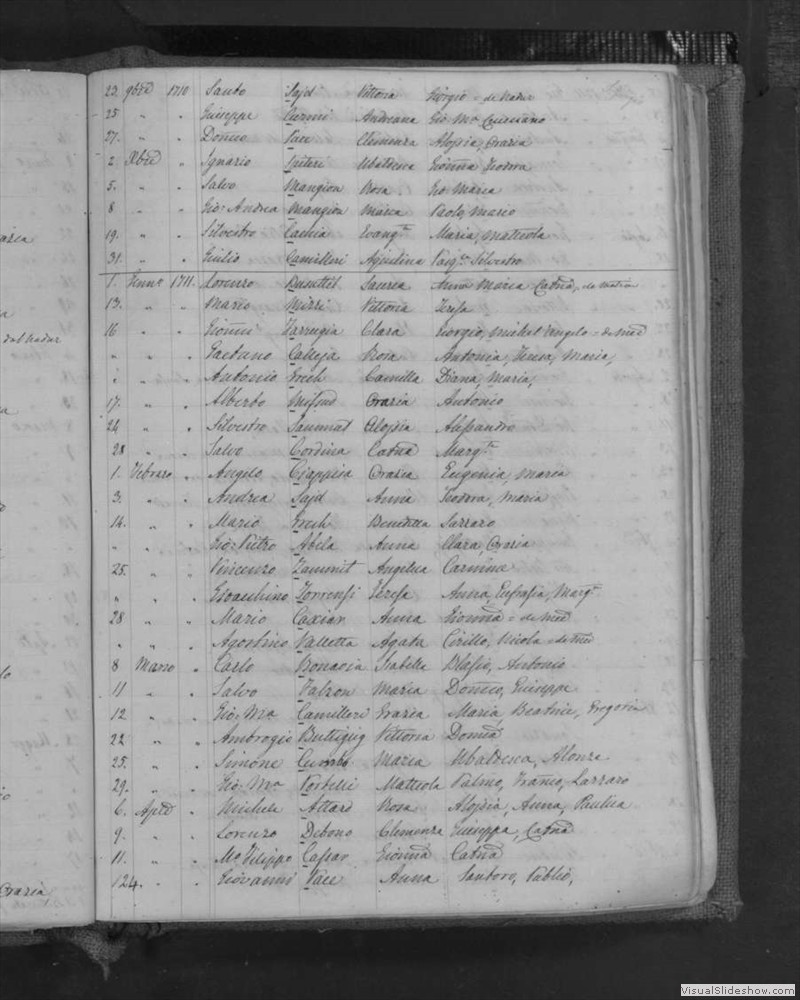 23. 9bre 1710 Santo Sajd Vittoria Giorgio - de Nadur
25 " " Giuseppe Curmi Andreana Gio Ma
27. " " Domco Pace Clemenza Aloisia, Grazia
2. Xbre " Ignazio Spiteri Ubaldesca Teodora
5. " " Salvo Mangion Rosa Gio Maria
8 " " Gio: Andrea Mangion Maria Paolo, Mario
19. " " Silvestro Cachia Evangta Maria, Matteola
31. " " Giulio Camilleri Aquilina Silvestro
1. Genno 1711. Lorenzo Busuttil Saura Anna Maria Catna,
13. " " Mario Mizzi Vittoria Teresa
16 " " Gionni Farrugia Clara Giorgio, Michel'Angelo - de
" " " Gaetano Calleja Rosa Antonia, Teresa, Maria,
" " Antonio Grech Camilla Diana, Maria,
17. " " Alberto Mifsud Grazia Antonio
24 " " Silvestro Sammut Aloisia Alessandro
28 " " Salvo Cordina Catna Margta
1. Febraro " Angelo Ciappisa Grazia Eugenia, Maria
3. " " Andrea Sajd Anna Teodora, Maria
14. " " Mario Grech Benedetta Lazzaro
" " " Gio: Pietro Abela Anna Clara, Grazia
25. " " Vincenzo Zammit Angelica Carmine
" " " Gioachino Torrensi Teresa Anna, Eufrasia, Margta
28 " " Mario Caxiar Anna Gionna - de
" " " Agostino Valletta Agata Cirillo, Nicola - de
8 Marzo " Carlo Bonavia Isabella Blasio, Antonio
11 " " Salvo Falzon Maria Domco, Giuseppe
12 " " Gio: Ma Camilleri Grazia Maria, Beatrice, Gregoria
22 " " Ambrogio Buttigieg Vittoria Domca
25. " " Simone Cumbo Maria Ubaldesca, Alonza
29. " " Gio: Ma Portelli Matteola Palmo, Franco, Lazzaro
6. Aple " Michele Attard Rosa Aloisia, Anna, Paulica
9. " " Lorenzo Debono Clemenza Giuseppa, Catna
11. " " Mo Filippo Cassar Gionna Catna
124. " " Giovanni Pace Anna Santoro, Publio,
dal Nadur
Grazia
VisualSlideshow.com